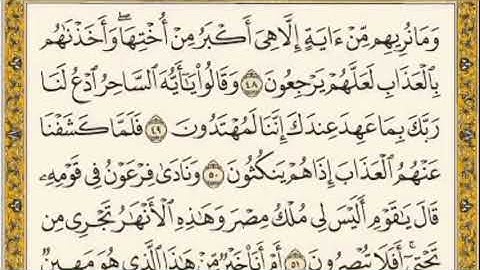 وَمَا نُرِيهِم مِّنْ ءَايَةٍ إِلَّا هِيَ أَكْبَرُ مِنْ أُخْتِهَا ۖ وَأَخَذْنَٰهُم
بِٱلْعَذَابِ لَعَلَّهُمْ يَرْجِعُونَ ٤٨ وَقَالُوا۟ يَٰٓأَيُّهَ ٱلسَّاحِرُ ٱدْعُ لَنَا
رَبَّكَ بِمَا عَهِدَ عِندَكَ إِنَّنَا لَمُهْتَدُونَ ٤٩ فَلَمَّا كَشَفْنَا
عَنْهُمُ ٱلْعَذَابَ إِذَا هُمْ يَنكُثُونَ ٥٠ وَنَادَىٰ فِرْعَوْنُ فِي قَوْمِهِۦ
قَالَ يَٰقَوْمِ أَلَيْسَ لِي مُلْكُ مِصْرَ وَهَٰذِهِ ٱلْأَنْهَٰرُ تَجْرِي مِن
تَحْتِيٓ ۖ أَفَلَا تُبْصِرُونَ ٥١ أَمْ أَنَا۠ خَيْرٌ مِّنْ هَٰذَا ٱلَّذِي هُوَ مَهِينٌ